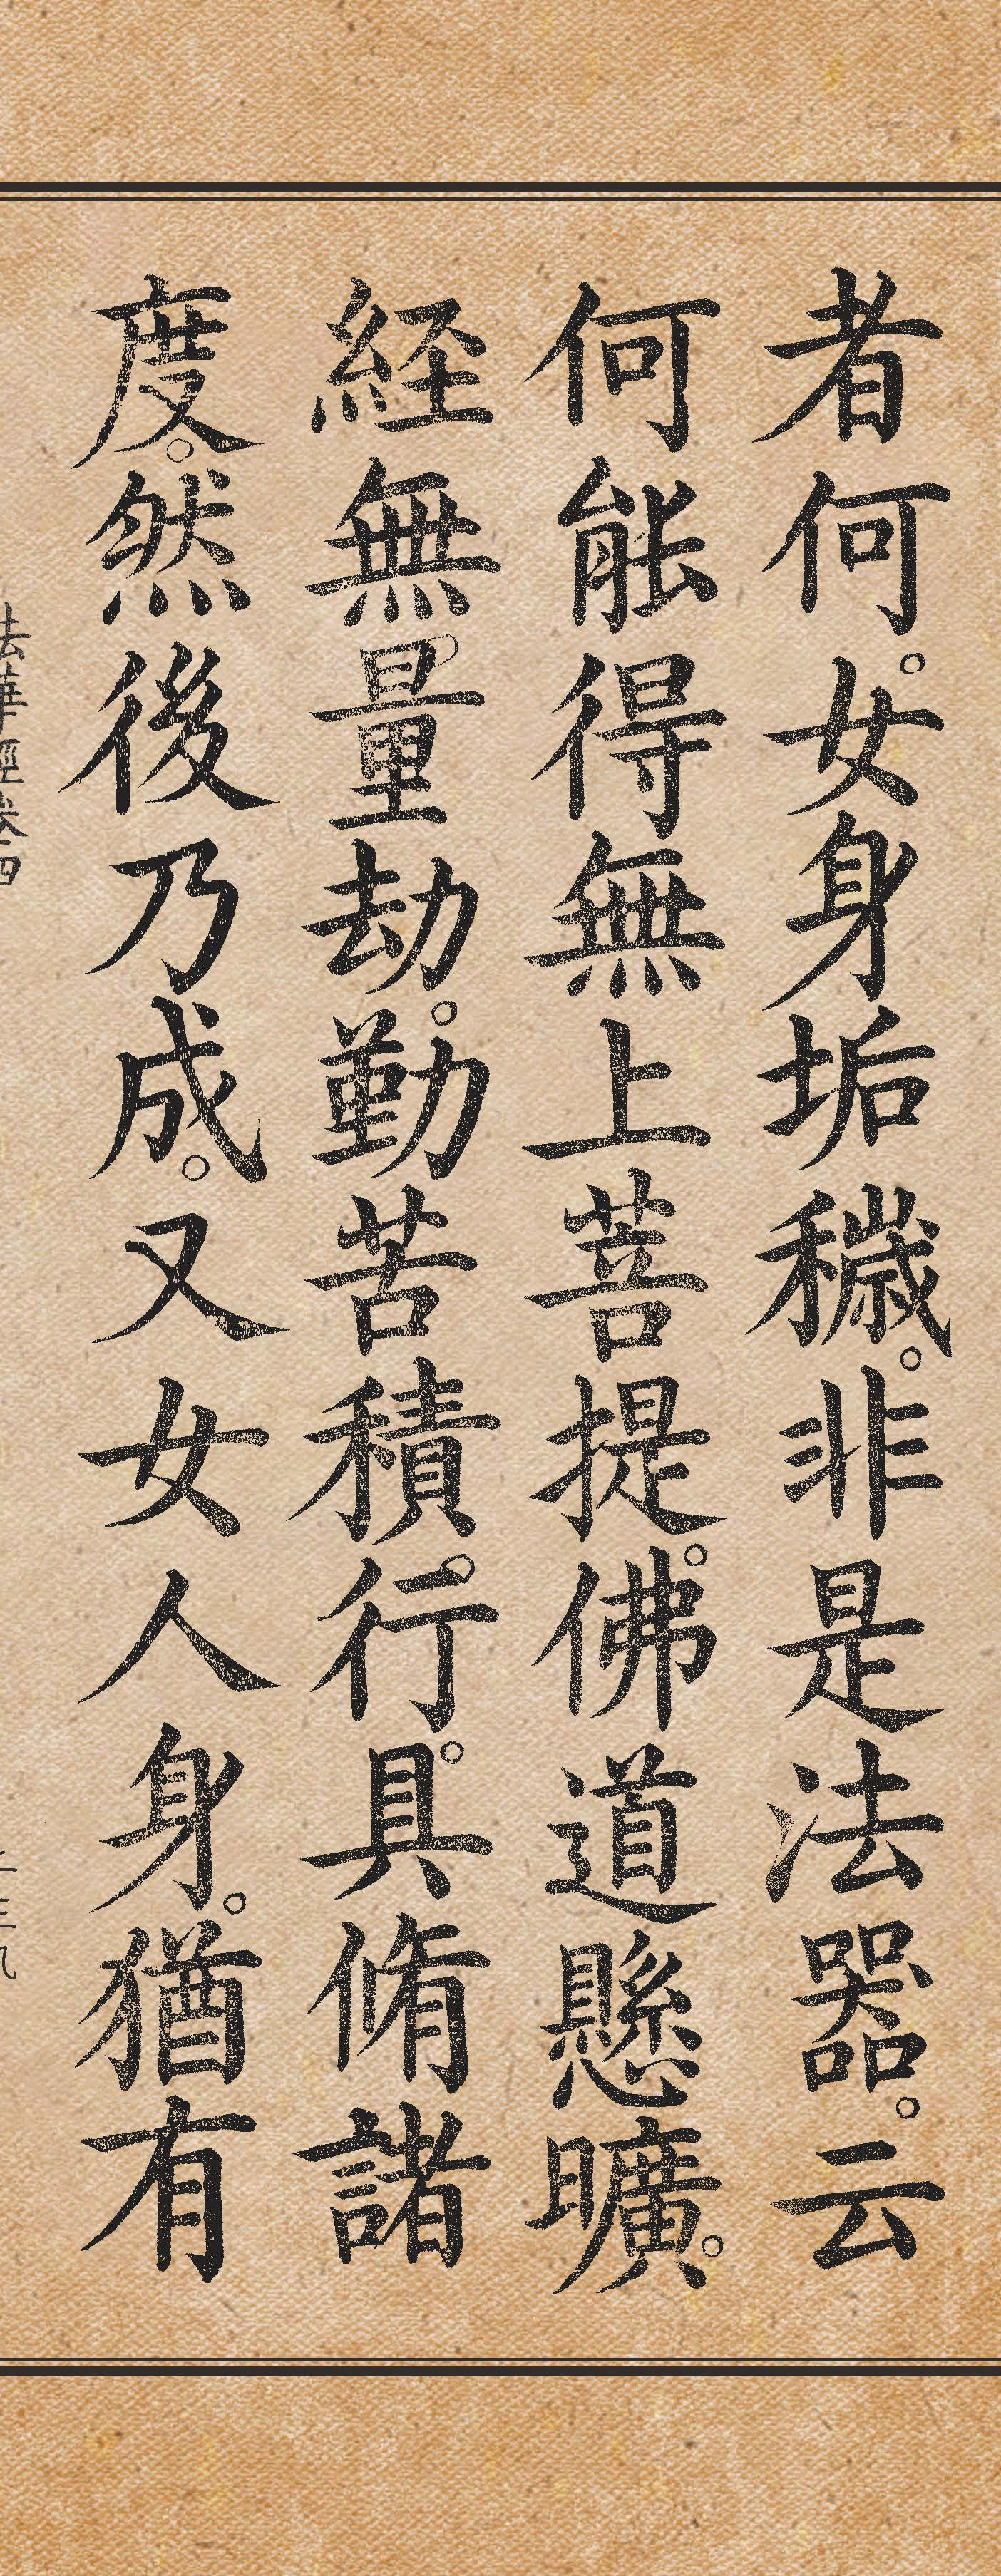 者何。女身垢穢。非是法器。云
何能得無上菩提。佛道懸曠。
経無量劫。勤苦積。行。具脩諸
度。然後乃成。又女人身。猶有
法華經卷四
二三九